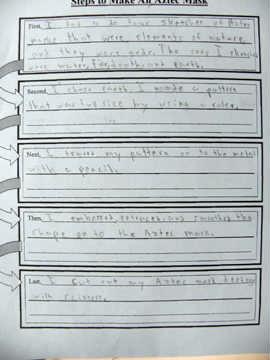 Steps to Make An Aztec Mask
First, I had to do four sketches of Aztec
masks that were elements of nature
and they were gods. The ones I
were water, and earth.
Second, I chose earth. I made a pattern
that was full size by using a ruler.
Next, I traced my pattern on to the metal
with a pencil.
Then, I embossed, and the
shape on to the Aztec mask.
Last, I cut out my Aztec mask design
with scissors.